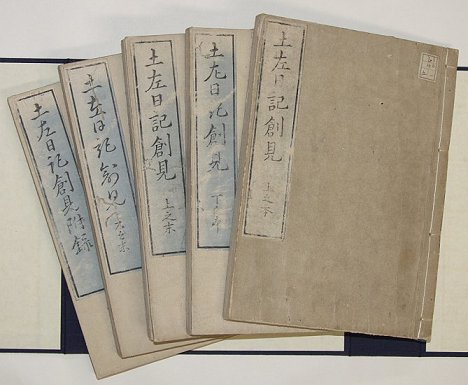 土左日記創見 上之本
土左日記創見 下之本
土左日記創見 上之末
土左日記創見
土左日記創見附録